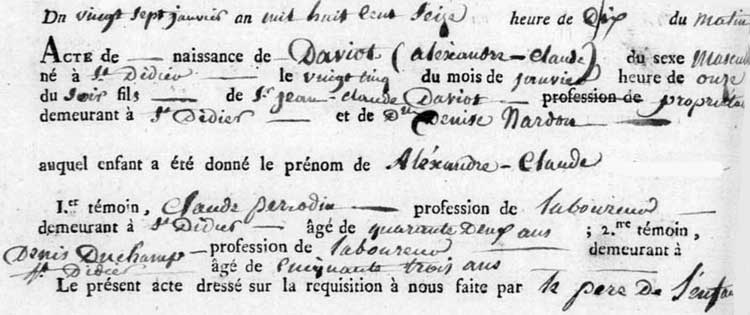 Du vingt sept janvier an mil huit cent seize heure de dix du matin
ACTE de naissance de Daviot (alexandre-Claude) du sexe Mascul
né à St Didier le vingt cinq du mois de janvier heure de onze
du soir fils de Sr jean-claude Daviot profession de proprieta
demeurant à St Didier et de Dlle Denise Nardon
auquel enfant a été donné le prénom de Aléxandre-Claude
I.er témoin, Claude perrodin profession de laboureur
demeurant à St Didier âgé de quarante deux ans ; 2.me témoin,
Denis Duchamp profession de laboureur demeurant à
St Didier âgé de cinquante trois ans
Le présent acte dressé sur la requisition à nous faite par le pere De l'enfan